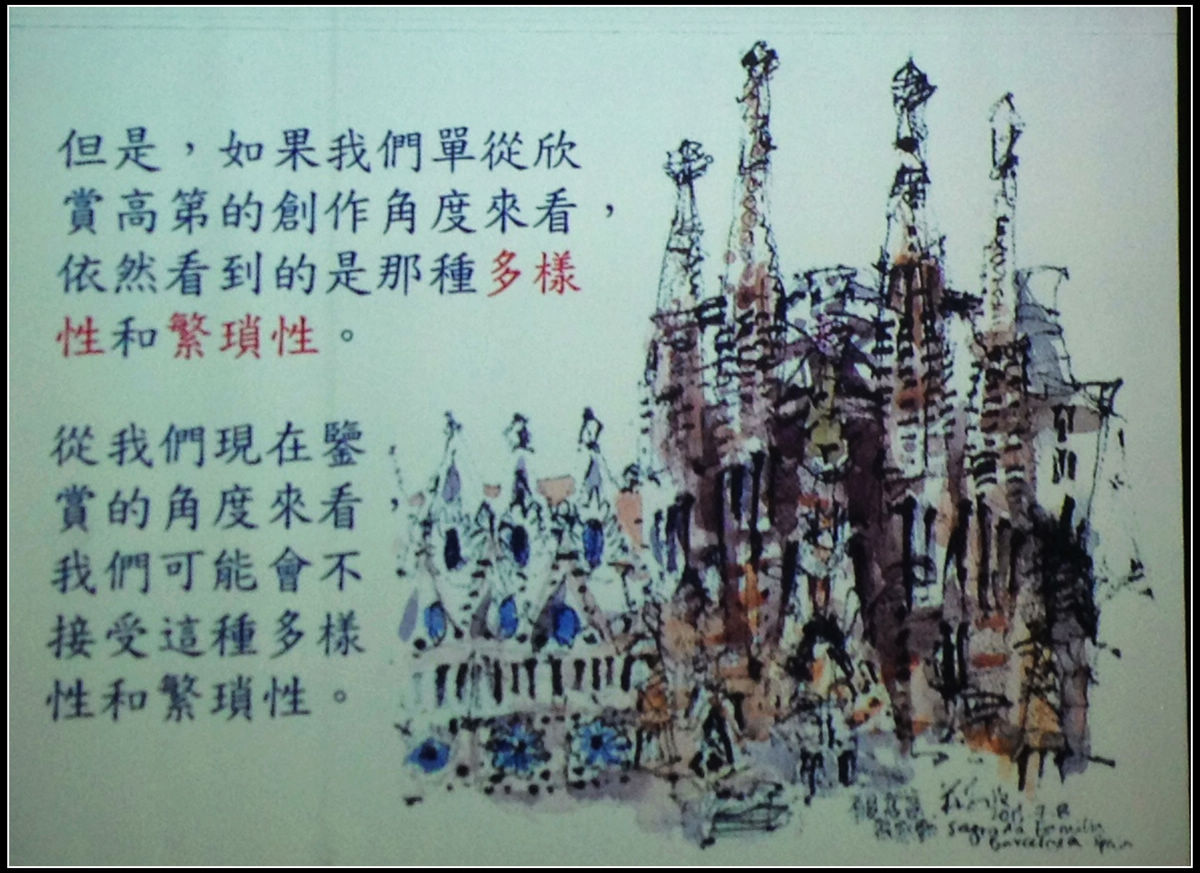 但是，如果我們單從欣
賞高第的創作角度來看，
依然看到的是那種多樣
性和繁瑣性。
從我們現在鑒
賞的角度來看，
我們可能會不
接受這種多樣
性和繁瑣性。
Sagrada Familia
Barcelona Spain